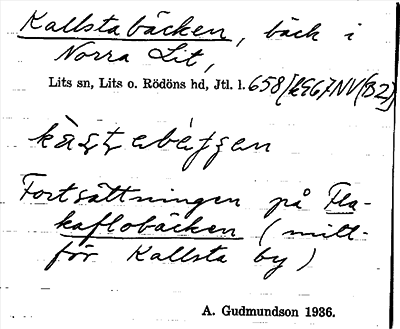 Kallstabäcken, bäck i
Norra Lit,
Lits sn, Lits o. Rödöns hd, Jtl. l. 658/
Fortsättningen på Fla-
kaflobäcken (mitt-
för Kallsta by)
A. Gudmundson 1936.